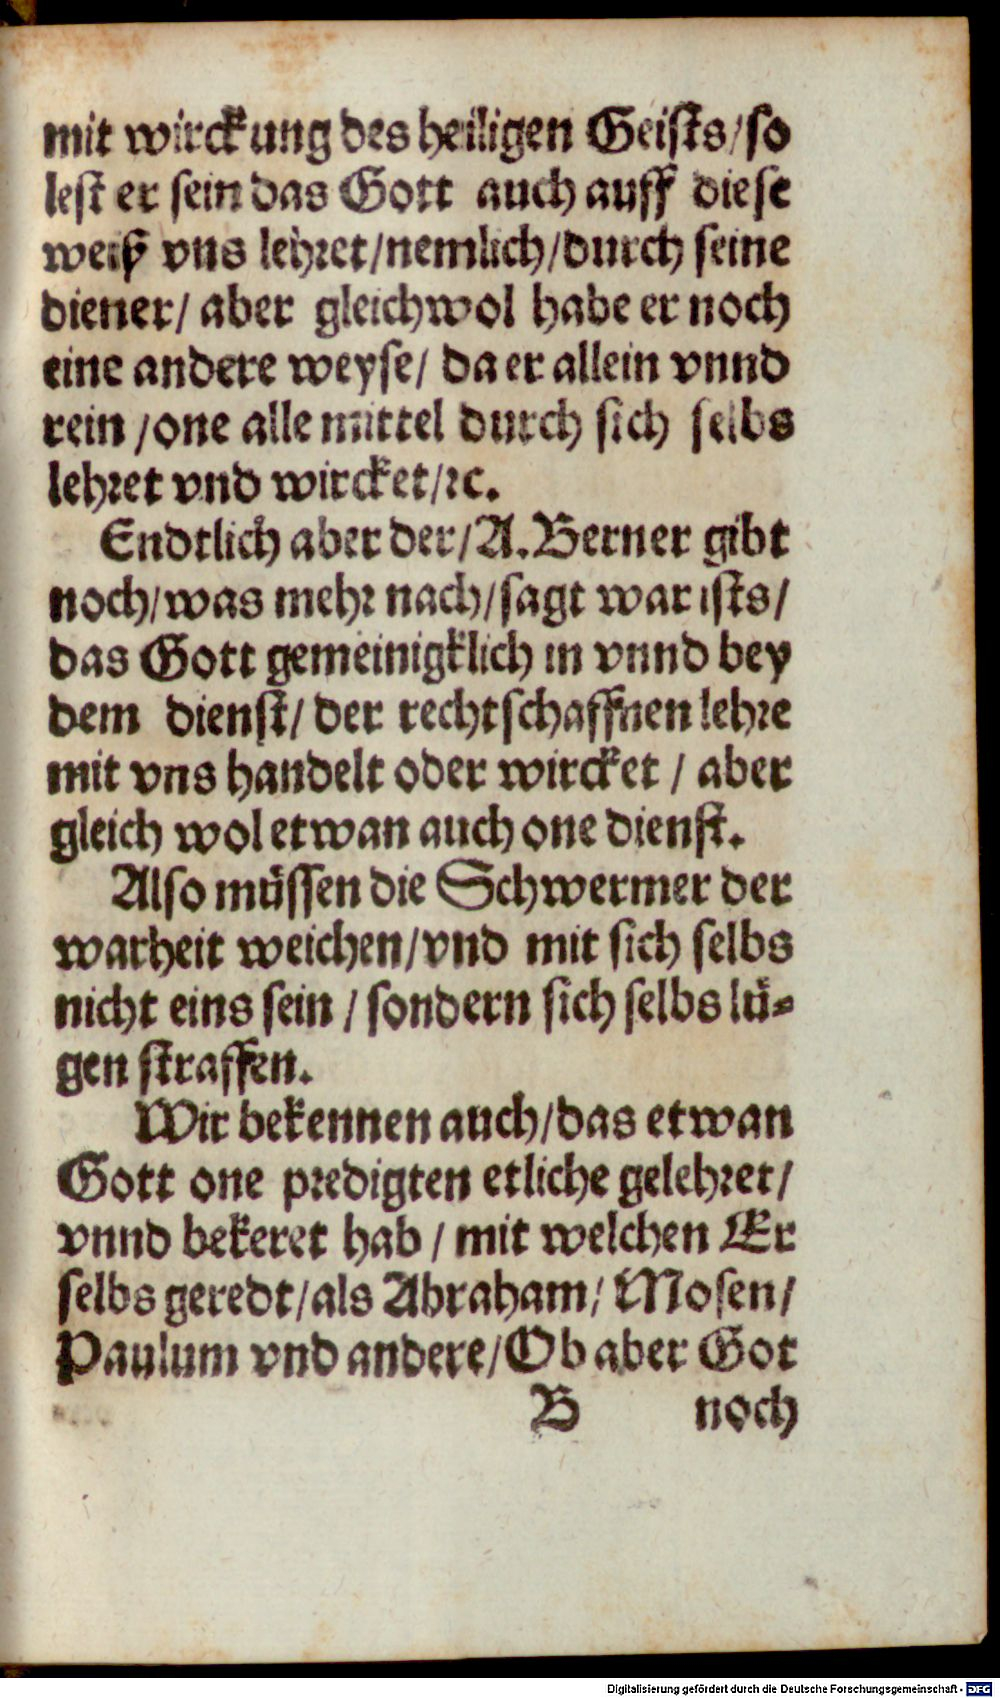 mit wirckung des heiligen Geists/so
lest er sein das Gott auch auff diese
weiß vns lehret/nemlich/durch seine
diener/ aber gleichwol habe er noch
eine andere weyse/ da er allein vnnd
rein /one alle mittel durch sich selbs
lehret vnd wircket/ꝛc.
Endtlich aber der/A.Berner gibt
noch/was mehr nach/sagt war ists/
das Gott gemeinigklich in vnnd bey
dem dienst/ der rechtschaffnen lehre
mit vns handelt oder wircket / aber
gleich wol etwan auch one dienst.
Also müssen die Schwermer der
warheit weichen/vnd mit sich selbs
nicht eins sein / sondern sich selbs lü⸗
gen straffen.
Wir bekennen auch/das etwan
Gott one predigten etliche gelehret/
vnnd bekeret hab / mit welchen Er
selbs geredt/als Abraham/ Mosen/
Paulum vnd andere/Ob aber Got
B noch
Digitalisierung gefördert durch die Deutsche Forschungsgemeinschaft - DFG